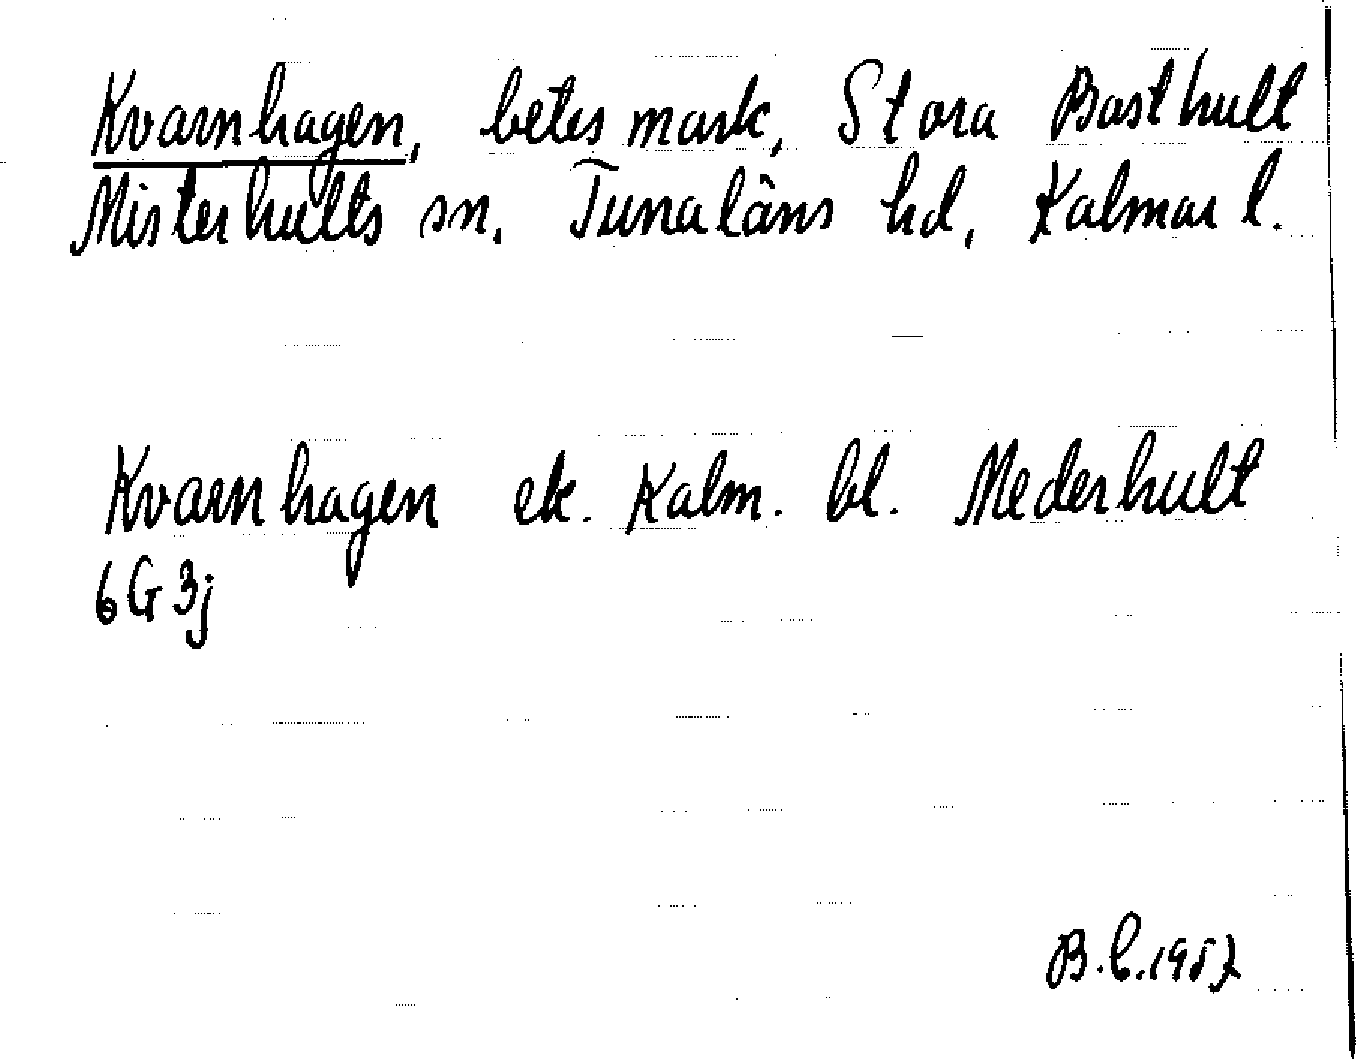 Kvarnhagen, betesmark, Stora Basthult
Misterhults sn, Tunaläns hd, Kalmar l.
Kvarnhagen ek. Kalm. bl. Mederhult
6G3j